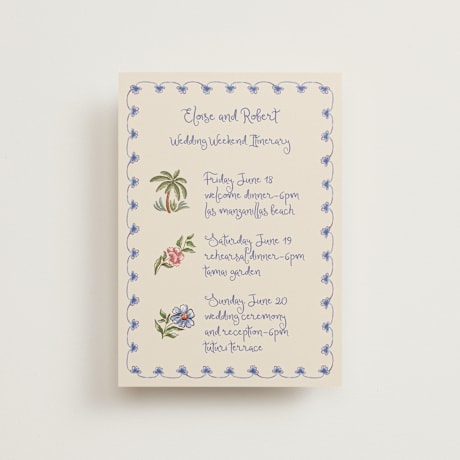 Eloise and Robert
Wedding Weekend Itinerary
Friday June 18
welcome dinner-6pm
las manzanillas beach
Saturday June 19
rehearsal dinner-6pm
tamai garden
Sunday June 20
wedding ceremony
and reception-6pm
tuturi terrace